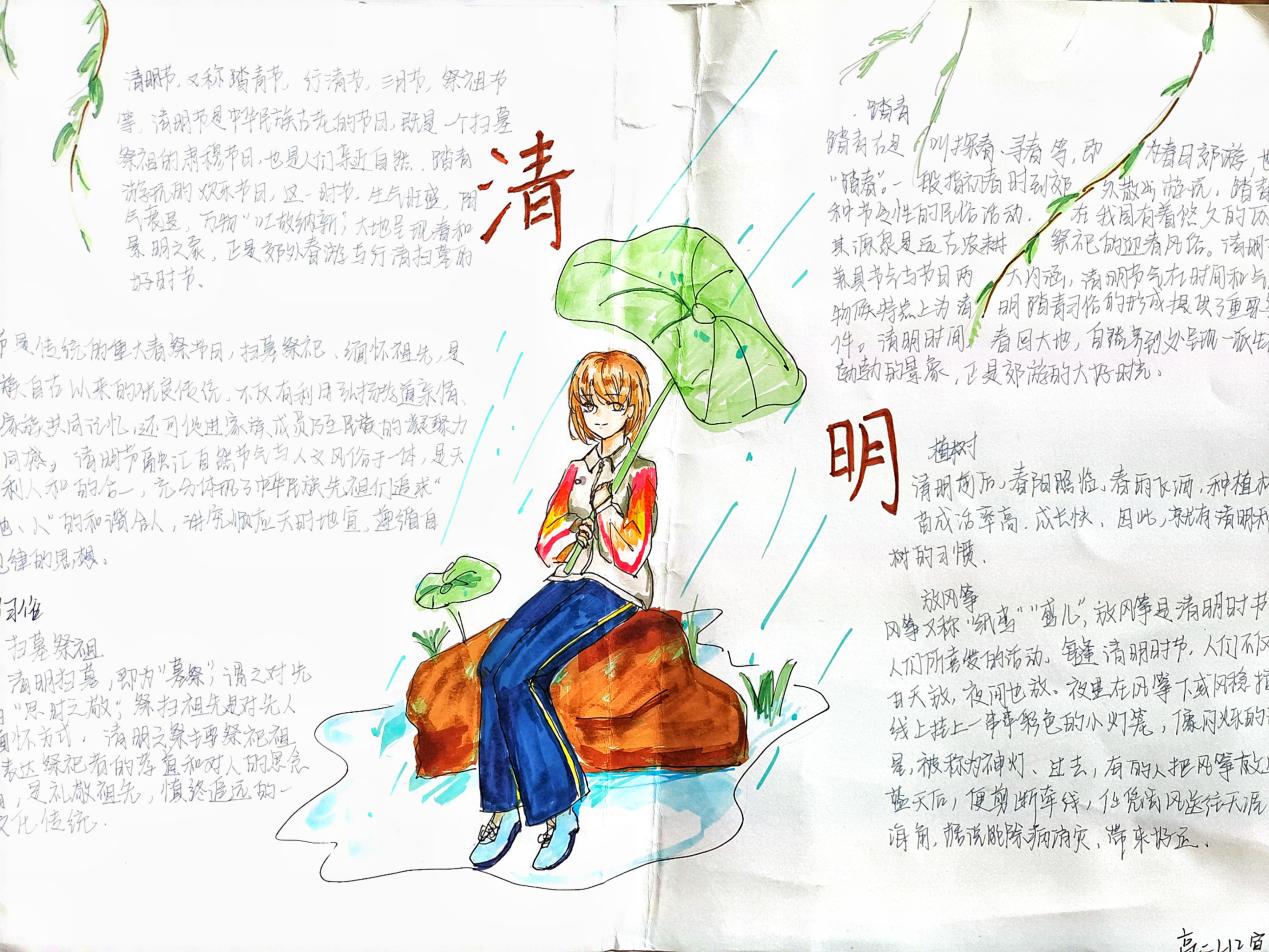 清明节,又称踏青节,行清节,三月节,祭祖节
等,清明节是中华民族古老的节日,既是一个扫墓
祭祖的肃穆节日,也是人们亲近自然、踏青
游玩的欢乐节日,这一时节,生气旺盛,阴
气衰退,万物“吐故纳新”,大地呈现春和
景明之象,正是郊外春游与行清扫墓的
好时节。
清
节是传统的重大春祭节日,扫墓祭祀、缅怀祖先,是
自古以来的优良传统,不仅有利于弘扬孝道亲情、
家族共同记忆,还可促进家族成员乃至民族的凝聚力
同感。清明节融汇自然节气与人文风俗于一体,是天
利人和的合一,充分体现了中华民族先祖们追求“
地、人”的和谐合一,讲究顺应天时地宜、遵循自
规律的思想。
习俗
扫墓祭祖
清明扫墓,即为“墓祭”,谓之对先
“思时之敬”,祭扫祖先是对先人
缅怀方式,清明之祭主要祭祀祖
表达祭祀者的孝道和对人的思念
,是礼敬祖先,慎终追远的一
文化传统.
踏青
踏青古是 叫探春、寻春等,即 为春日郊游,也
“踏青”。一般指初春时到郊 外散步游玩,踏青
种节令性的民俗活动. 在我国有着悠久的历
其源泉是远古农耕 祭祀的迎春习俗。清明
兼具节气与节日两 大内涵,清明节气在时间和气
物候特点上为清 明踏青习俗的形成提供了重要
件。清明时间, 春回大地,自然界到处呈现一派生
勃勃的景象,正是郊游的大好时光.
明
植树
清明前后,春阳照临、春雨飞洒,种植树
苗成活率高.成长快、因此,就有清明植
树的习惯.
放风筝
风筝又称“纸鸢”“鸢儿”,放风筝是清明时节
人们所喜爱的活动、每逢清明时节,人们不仅
白天放,夜间也放、夜里在风筝下或风稳拉
线上挂上一串串彩色的小灯笼,像闪烁的
星,被称为神灯、过去,有的人把风筝放上
蓝天后,便剪断牵线,任凭清风送往天涯
海角,据说能除病消灾、带来好运.
高二